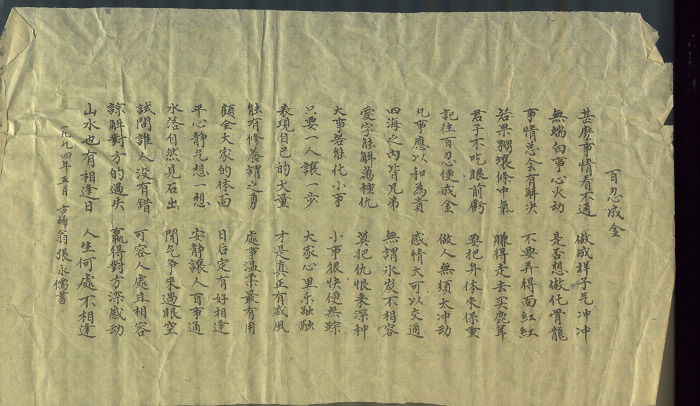 百忍成金
甚麽事情看不通 做成样子气冲冲
無端向事心火动 是否想做化骨龍
事情总会有解决 不要弄得面红红
若果嬲壞條中氣 賺得走去买鹿茸
君子不吃眼前虧 要把身体来保重
記住百忍便成金 做人無须太冲动
凡事應以和為貴 感情大可以交通
四海之內皆兄弟 無謂氷炭不相容
爱字能解萬種仇 莫把仇恨来深种
大事若能化小事 小事很快便無踪
只要一人讓一步 大家心里乐融融
表現自己的大量 才是真正有威风
能有修養謂之勇 處事温柔最有用
顧全大家的体面 日后定有好相逢
平心静气想一想 安静讓人百事通
水落自然見石出 閒气争来過眼空
試問誰人没有錯 可容人處且相容
諒解對方的過失 贏得對方深感动
山水也有相逢日 人生何處不相逢
一九九四年五月 古稀翁張永儒書